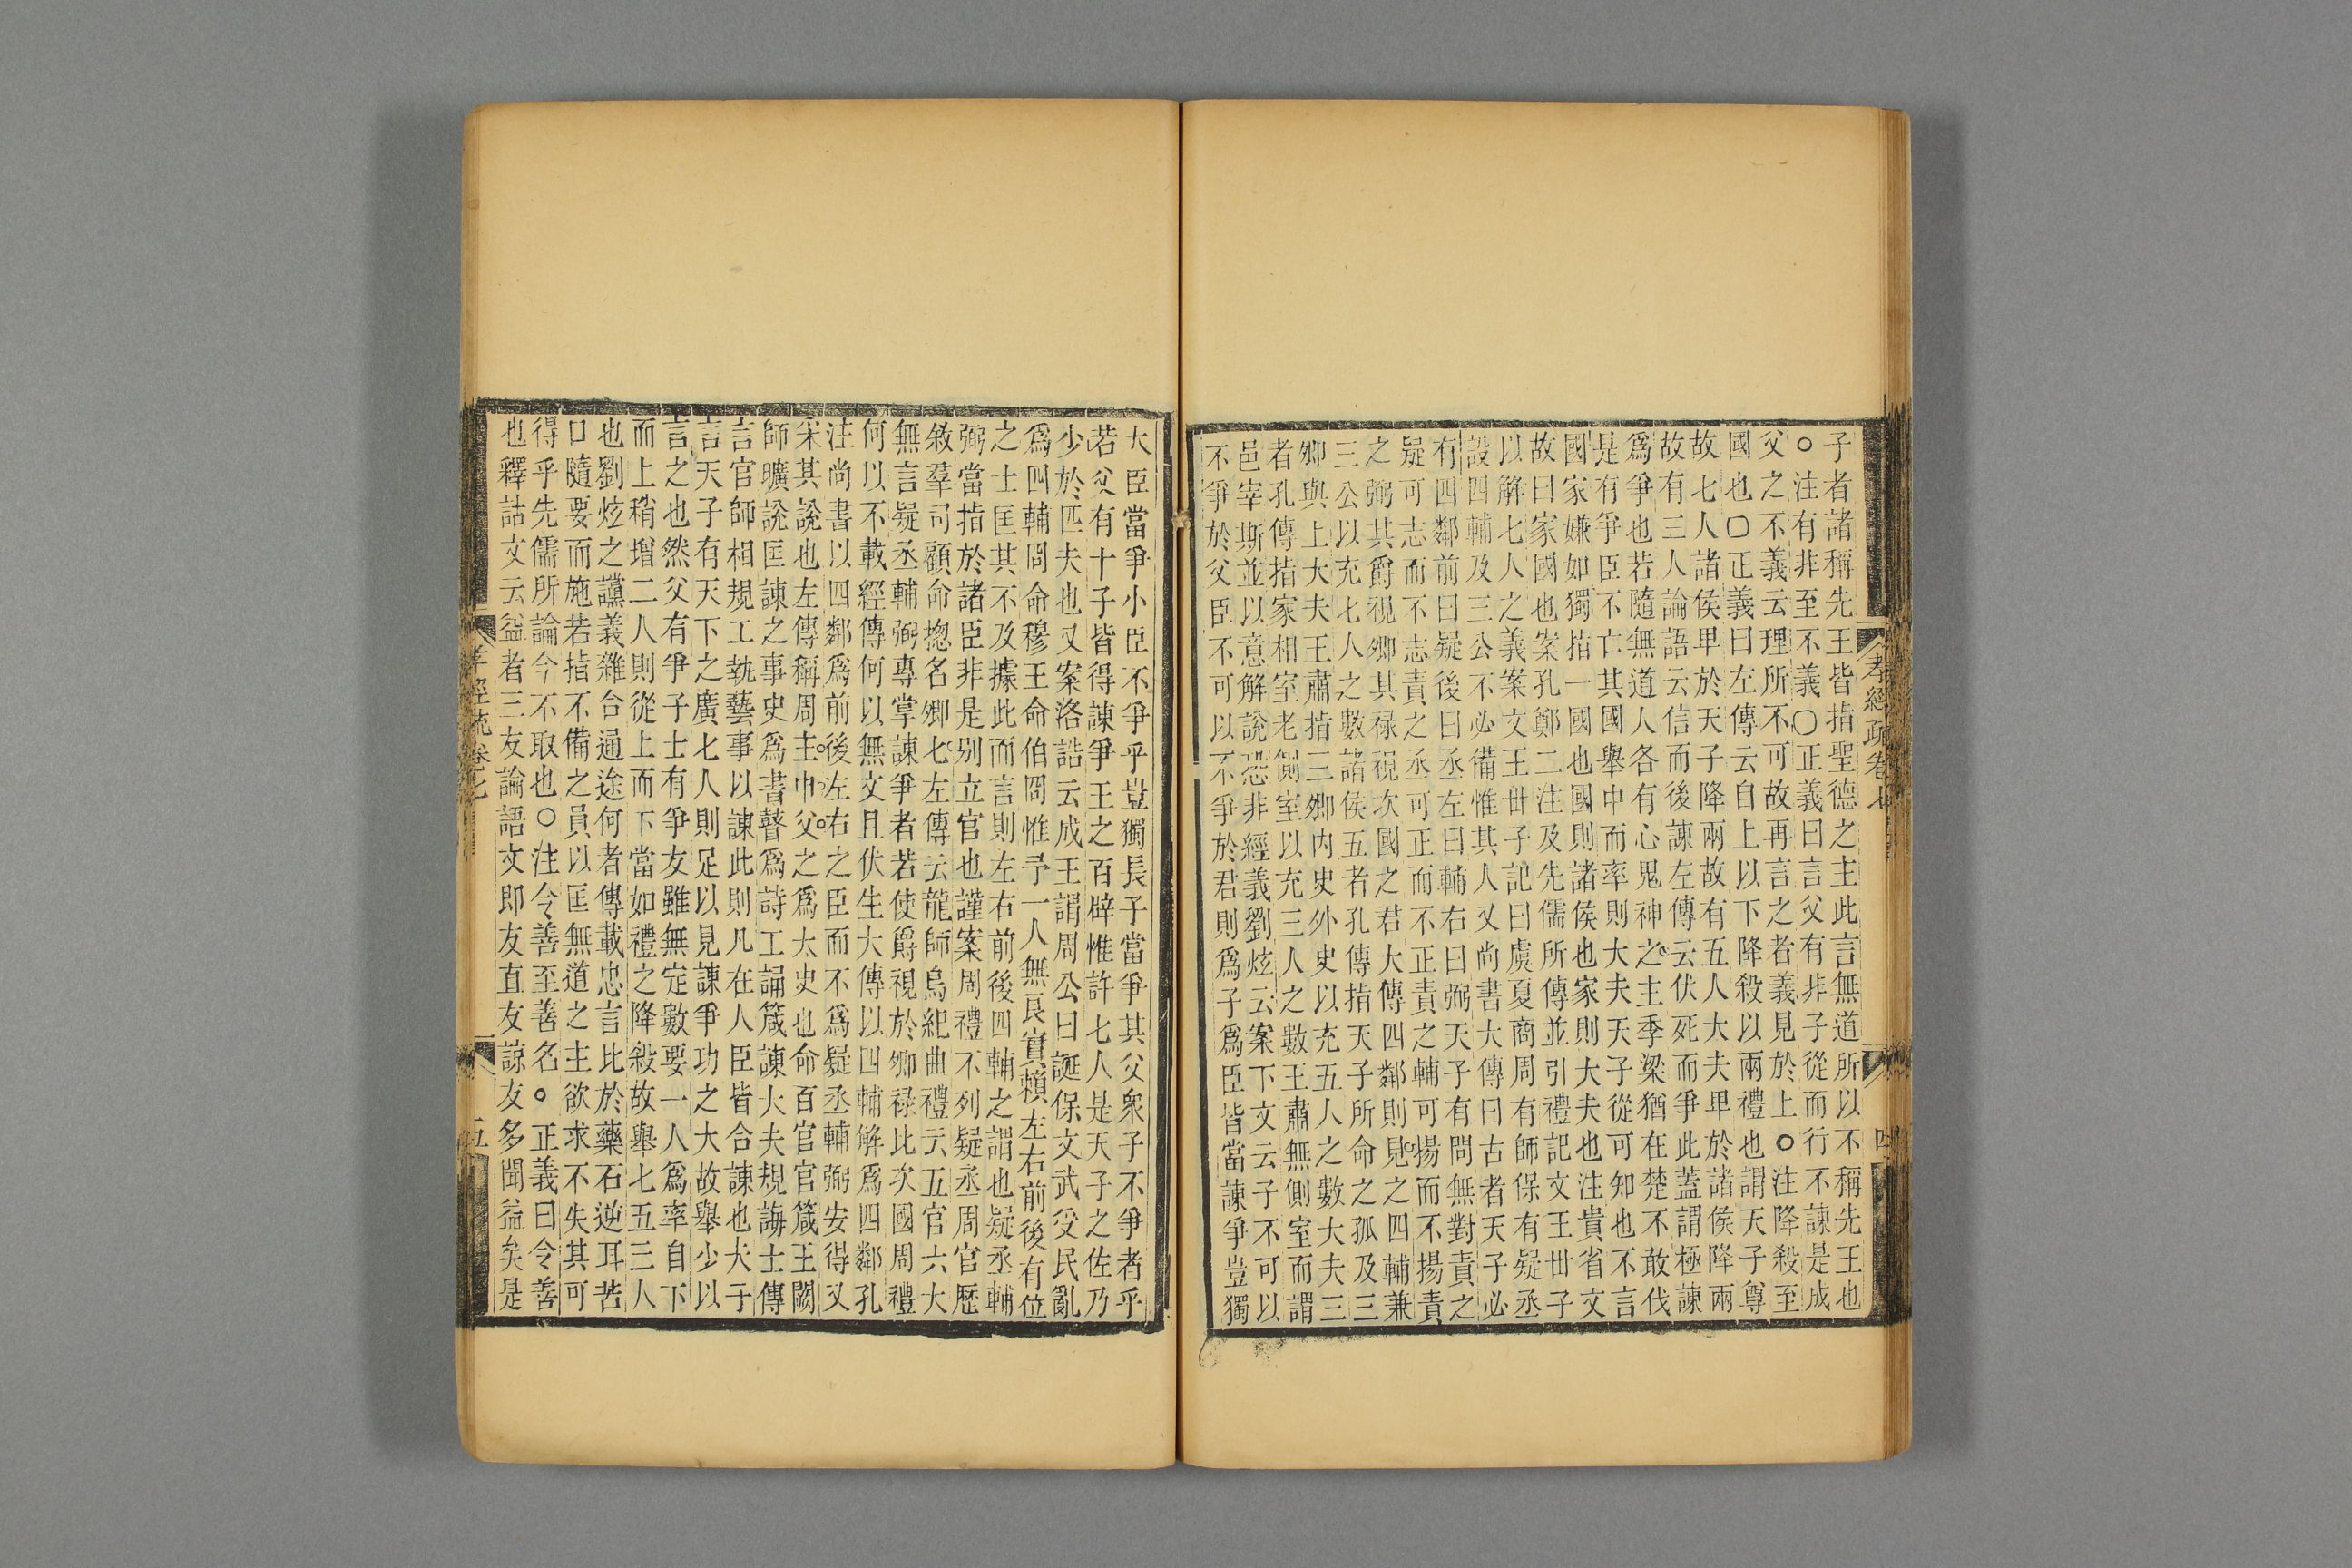 子者諸稱先王皆指聖德之主此言無道所以不稱先王也
○注有非至不義○正義曰言父有非子從而行不諫是成
父之不義云理所不可故再言之者義見於上○注降殺至
國也○正義曰左傳云自上以下降殺以兩禮也謂天子尊
故七人諸侯卑於天子降兩故有五人大夫卑於諸侯降兩
故有三人論語云信而後諫左傳云伏死而爭此蓋謂極諫
爲爭也若隨無道人各有心鬼神之主季梁猶在楚不敢伐
是有爭臣不亡其國舉中而率則大夫天子從可知也不言
國家嫌如獨指一國也國則諸侯也家則大夫也注貴省文
故曰家國也案孔鄭二注及先儒所傳並引禮記文王丗子
以解七人之義案文王丗子記曰虞夏商周有師保有疑丞
設四輔及三公不必備惟其人又尚書大傳曰古者天子必
有四鄰前曰疑後曰丞左曰輔右曰弼天子有問無對責之
疑可志而不志責之丞可正而不正責之輔可揚而不揚責
之弼其爵視卿其禄視次國之君大傳四鄰則見之四輔兼
三公以充七人之數諸侯五者孔傳指天子所命之孤及三
卿與上大夫王肅指三卿内史外史以充五人之數大夫三
者孔傳指家相室老側室以充三人之數王肅無側室而謂
邑宰斯並以意解說恐非經義劉炫云案下文云子不可以
不爭於父臣不可以不爭於君則爲子爲臣皆當諫爭豈獨
孝經疏卷七
四
大臣當爭小臣不爭乎豈獨長子當爭其父衆子不爭者乎
若父有十子皆得諫爭王之百辟惟許七人是天子之佐乃
少於匹夫也又案洛誥云成王謂周公曰誕保文武受民亂
爲四輔冏命穆王命伯冏惟予一人無良實賴左右前後有位
之士匡其不及據此而言則左右前後四輔之謂也疑丞輔
弼當指於諸臣非是别立官也謹案周禮不列疑丞周官歷
敘羣司顧命揔名卿七左傳云龍師鳥紀曲禮云五官六大
無言疑丞輔弼專掌諫爭者若使爵視於卿禄比次國周禮
何以不載經傳何以無文且伏生大傳以四輔解爲四鄰孔
注尚書以四鄰爲前後左右之臣而不爲疑丞輔弼安得又
采其說也左傳稱周主巾父之爲太史也命百官官箴王闕
師曠說匡諫之事史爲書瞽爲詩工誦箴諫大夫規誨士傳
言官師相規工執藝事以諫此則凡在人臣皆合諫也夫子
言天子有天下之廣七人則足以見諫爭功之大故舉少以
言之也然父有爭子士有爭友雖無定數要一人爲率自下
而上稍增二人則從上而下當如禮之降殺故舉七五三人
也劉炫之讜義雜合通途何者傳載忠言比於藥石逆耳苦
口隨要而施若指不備之員以匡無道之主欲求不失其可
得乎先儒所論今不取也○注令善至善名○正義曰令善
也釋詁文云益者三友論語文即友直友諒友多聞益矣是
孝經疏卷七
五